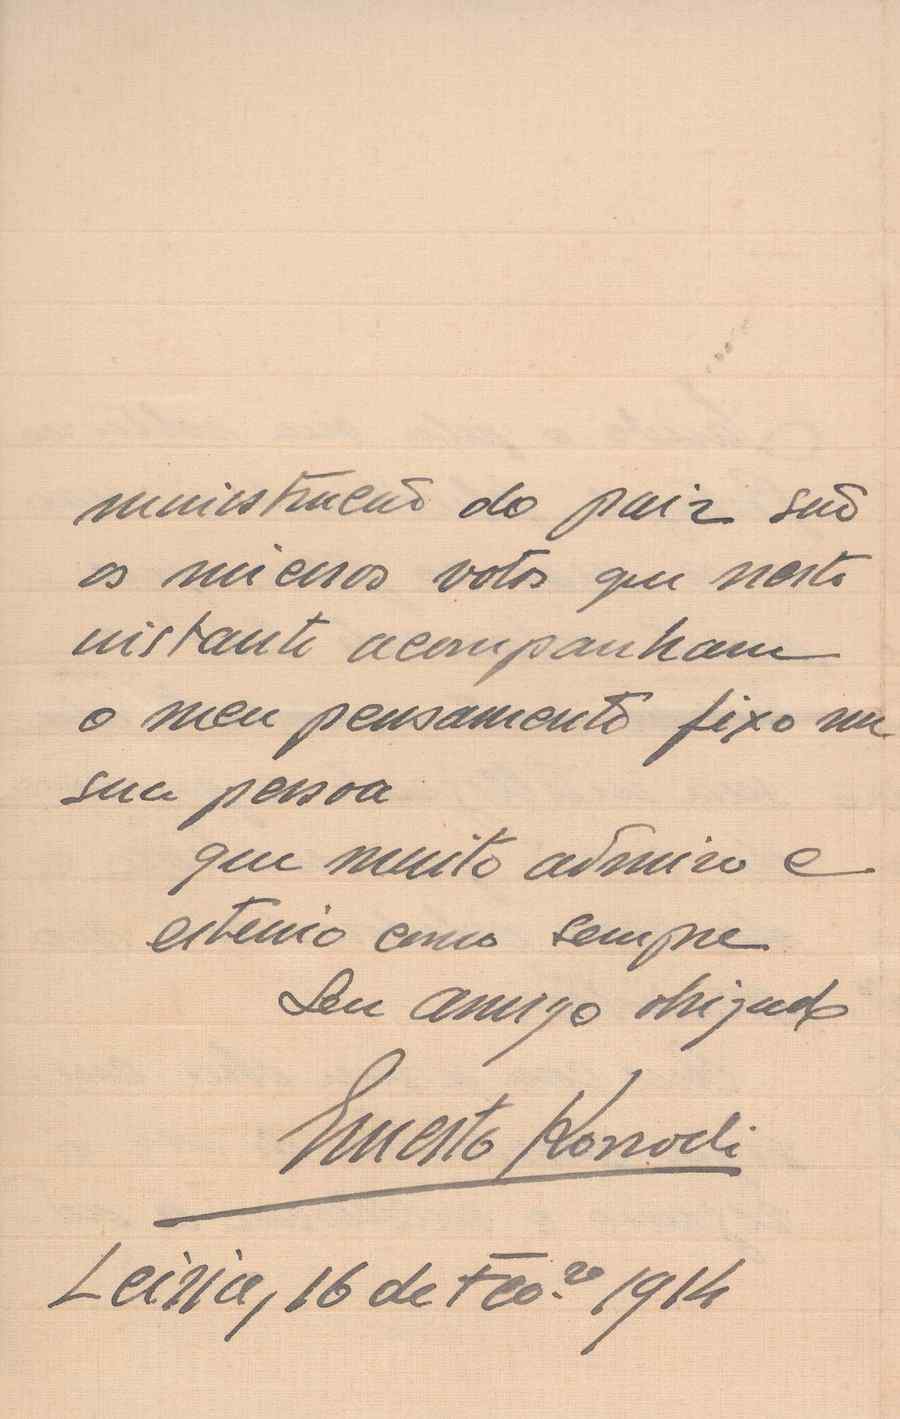 ministração do paiz são
os meus votos que neste
instante acompanham
o meu pensamento fixo na
sua pessoa
que muito admiro e
estimo como sempre
Seu amigo obrigado
Ernesto Korrodi
Leiria, 16 de Feb.ro 1914